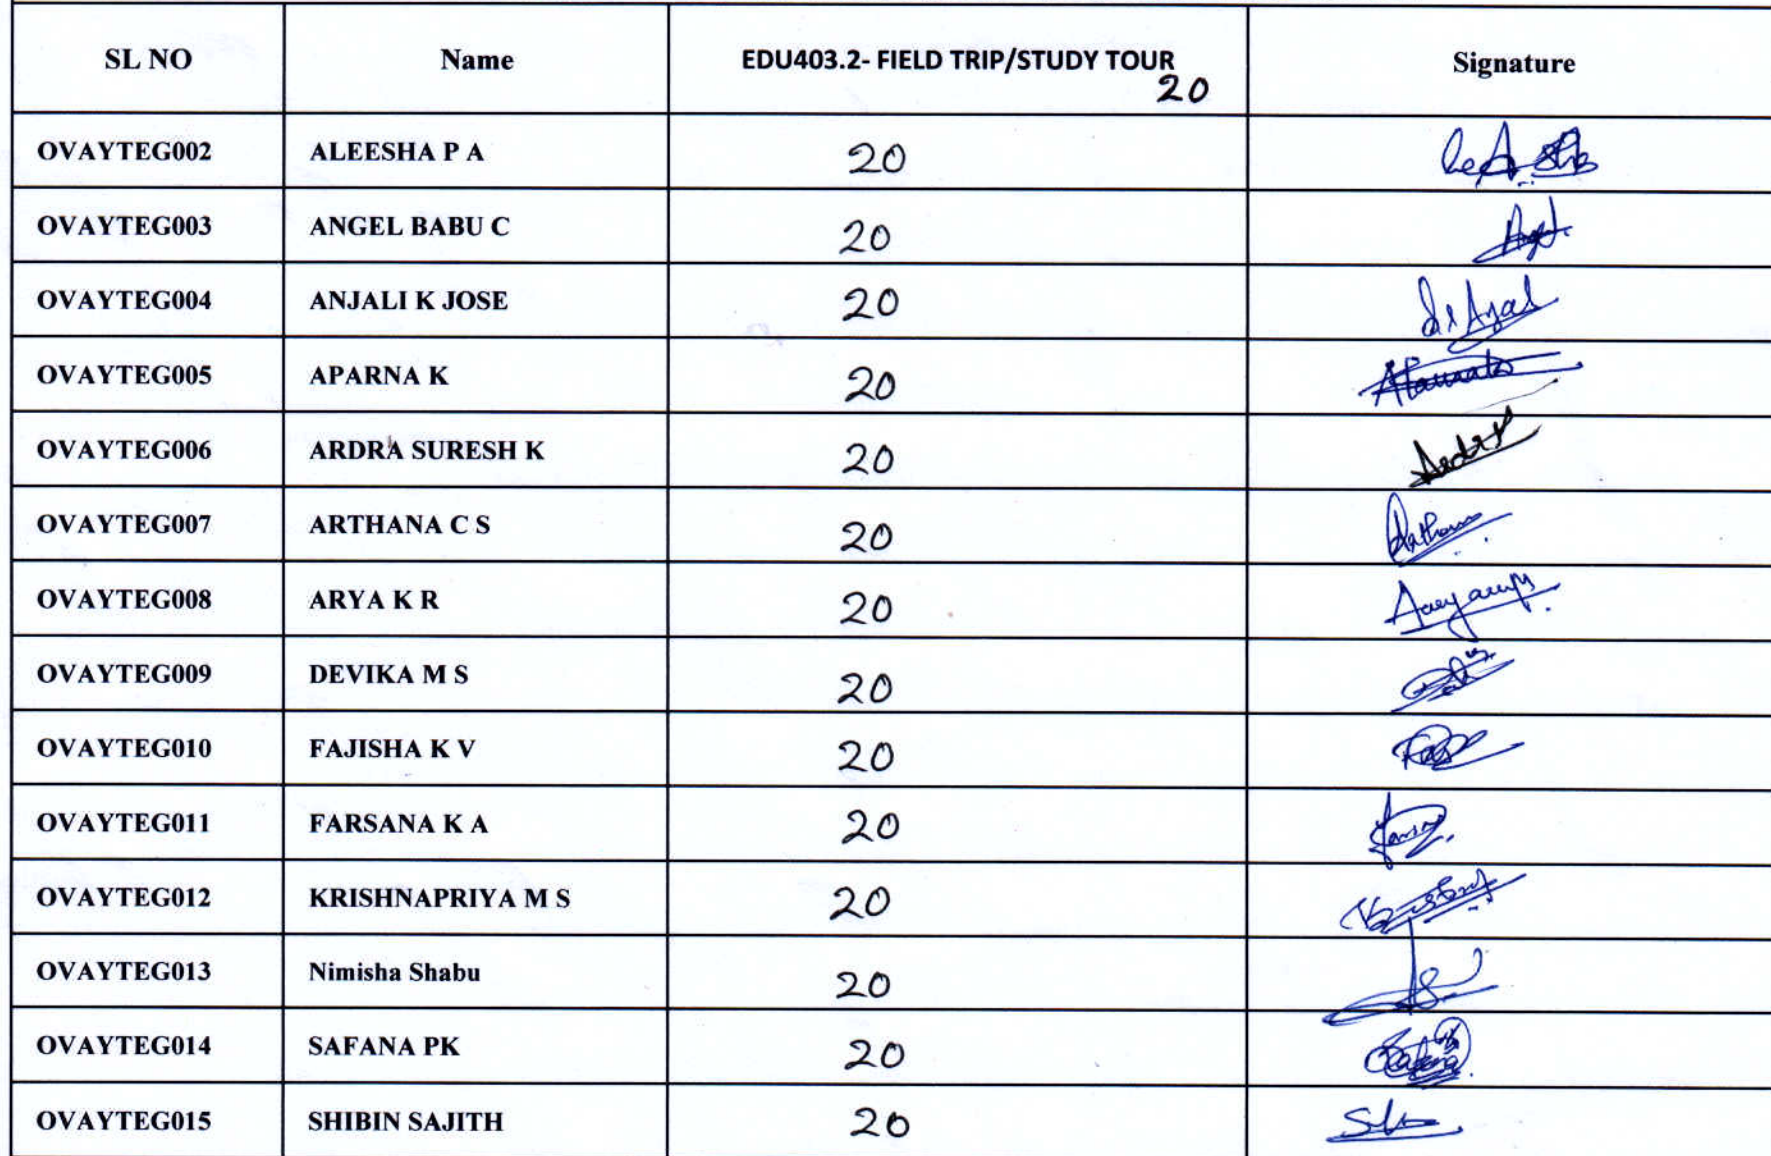 SL NO Name EDU403.2- FIELD TRIP/STUDY TOUR Signature
20
OVAYTEG002 ALEESHA P A 20
OVAYTEG003 ANGEL BABU C 20
OVAYTEG004 ANJALI K JOSE 20
OVAYTEG005 APARNA K 20
OVAYTEG006 ARDRA SURESH K 20
OVAYTEG007 ARTHANA C S 20
OVAYTEG008 ARYA K R 20
OVAYTEG009 DEVIKA M S 20
OVAYTEG010 FAJISHA K V 20
OVAYTEG011 FARSANA K A 20
OVAYTEG012 KRISHNAPRIYA M S 20
OVAYTEG013 Nimisha Shabu 20
OVAYTEG014 SAFANA PK 20
OVAYTEG015 SHIBIN SAJITH 20